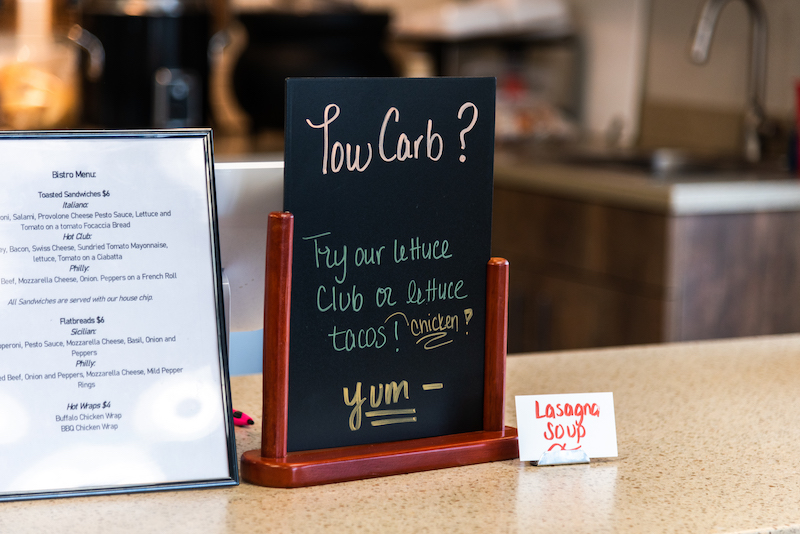 Bistro Menu:
Toasted Sandwiches $6
Italiano:
Salami, Provolone Cheese Pesto Sauce, Lettuce and
Tomato on a tomato Focaccia Bread
Hot Club:
Bacon, Swiss Cheese, Sundried Tomato Mayonnaise,
lettuce, Tomato on a Ciabatta
Philly:
Beef, Mozzarella Cheese, Onion, Peppers on a French Roll
All Sandwiches are served with our house chip.
Flatbreads $6
Sicilian:
Pesto Sauce, Mozzarella Cheese, Basil, Onion and
Peppers
Philly:
Beef, Onion and Peppers, Mozzarella Cheese, Mild Pepper
Rings
Hot Wraps $4
Buffalo Chicken Wrap
BBQ Chicken Wrap
Low Carb?
Try our lettuce
Club or lettuce
tacos! chicken!
yum -
Lasagna
Soup